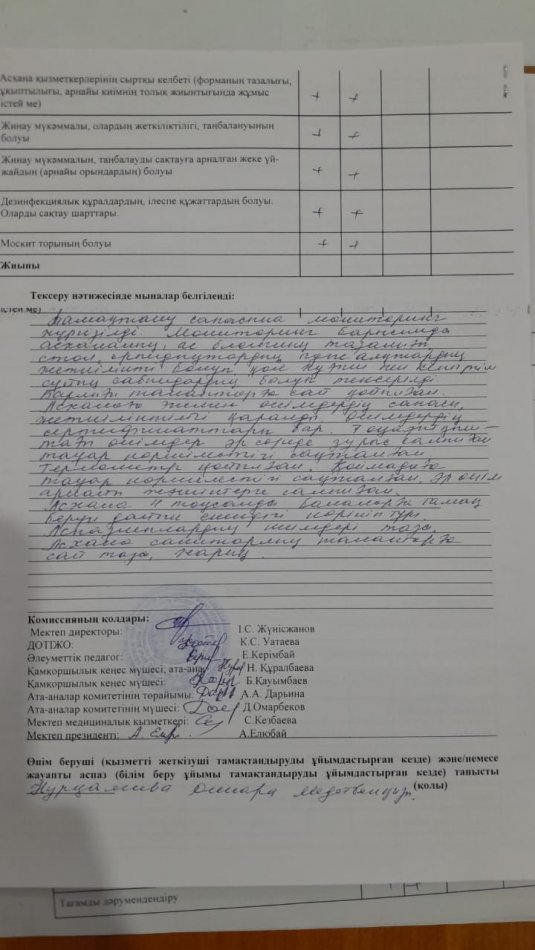 Асхана қызметкерлерінің сыртқы келбеті (форманың тазалығы,
ұқыптылығы, арнайы киімнің толық жиынтығында жұмыс
істей ме) + +
Жинау мүкәммалы, олардың жеткіліктілігі, таңбалануының
болуы + +
Жинау мүкәммалын, таңбалауды сақтауға арналған жеке үй-
жайдың (арнайы орындардың) болуы + +
Дезинфекциялық құралдардың, ілеспе құжаттардың болуы.
Оларды сақтау шарттары. + +
Москит торының болуы + +
Жиыны
Тексеру нәтижесінде мыналар белгіленді:
істей ме)
Тамақтану сапасына мониторинг
жүргізілді. Мониторинг барысында
асхананың, ас блогының тазалығы
стол, орындықтардың
жеткілікті болуы, қол жуғыш пен кептіргіш
сұйық сабындардың болуы тексерілді.
Барлығы талаптарға сай қойылған.
Асханаға келген өнімдердің сапасы,
жеткіліктілігі қаралды. Өнімдердің
сертификаттары бар. Тоңазытқыш-
тағы өнімдер әр сөреде дұрыс салынған
тауар көршілестігі сақталған,
Термометр қойылған. Қоймадағы
тауар көршілестігі сақталған. Әр өнім
арнайы салынған.
Асхана балаларға тамақ
беруге дайын екендігі көрініп тұр.
Аспазшылардың киімдері таза.
Асхана санитарлық талаптарға
сай таза, жарық.
Комиссияның қолдары:
Мектеп директоры: І.С. Жүнісжанов
ДОТІЖО: К.С. Уатаева
Әлеуметтік педагог: Е.Керімбай
Қамқоршылық кеңес мүшесі, ата-ана: Н. Құралбаева
Қамқоршылық кеңес мүшесі: Б.Қауымбаев
Ата-аналар комитетінің төрайымы: А.А. Дарьина
Ата-аналар комитетінің мүшесі: Д.Омарбеков
Мектеп медициналық қызметкері: С.Кезбаева
Мектеп президенті: А.Елюбай
Өнім беруші (қызметті жеткізуші тамақтандыруды ұйымдастырған кезде) және/немесе
жауапты аспаз (білім беру ұйымы тамақтандыруды ұйымдастырған кезде) танысты
(қолы)
Тағамды дәрумендендіру